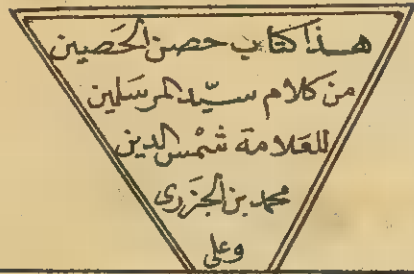 هذا كتاب حصن الحصين
من كلام سيّد المرسلين
للعلامة شمس الدين
محمد بن الجزرى
وعلى